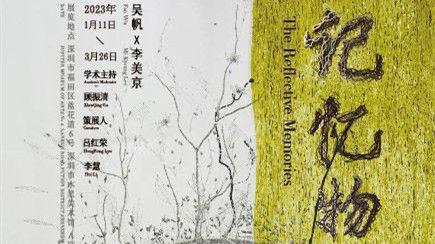 记忆物
The Reflective Memories
吴帆 x 李美京
Fan Wu
Mi Kyoung Lee
2023年
1月11日
3月26日
学术主持
Academic Moderator
顾振清
ZhenQing Gu
策展人
Curators
吕红荣
HongRong Lyu
李慧
Hui Li
展览地点
深圳市福田区莲花道6号